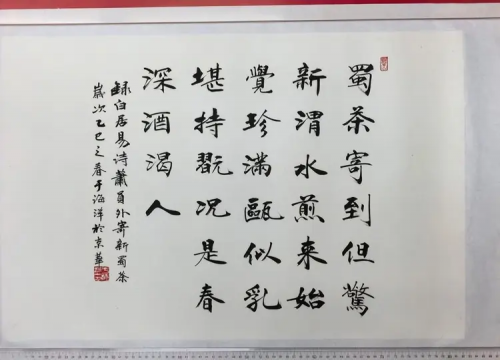 蜀茶寄到但驚
新渭水煎来始
覺珍滿甌似乳
堪持翫况是春
深酒渴人
録白居易诗蕭員外寄新蜀茶
歲次乙巳之春于海洋於京華